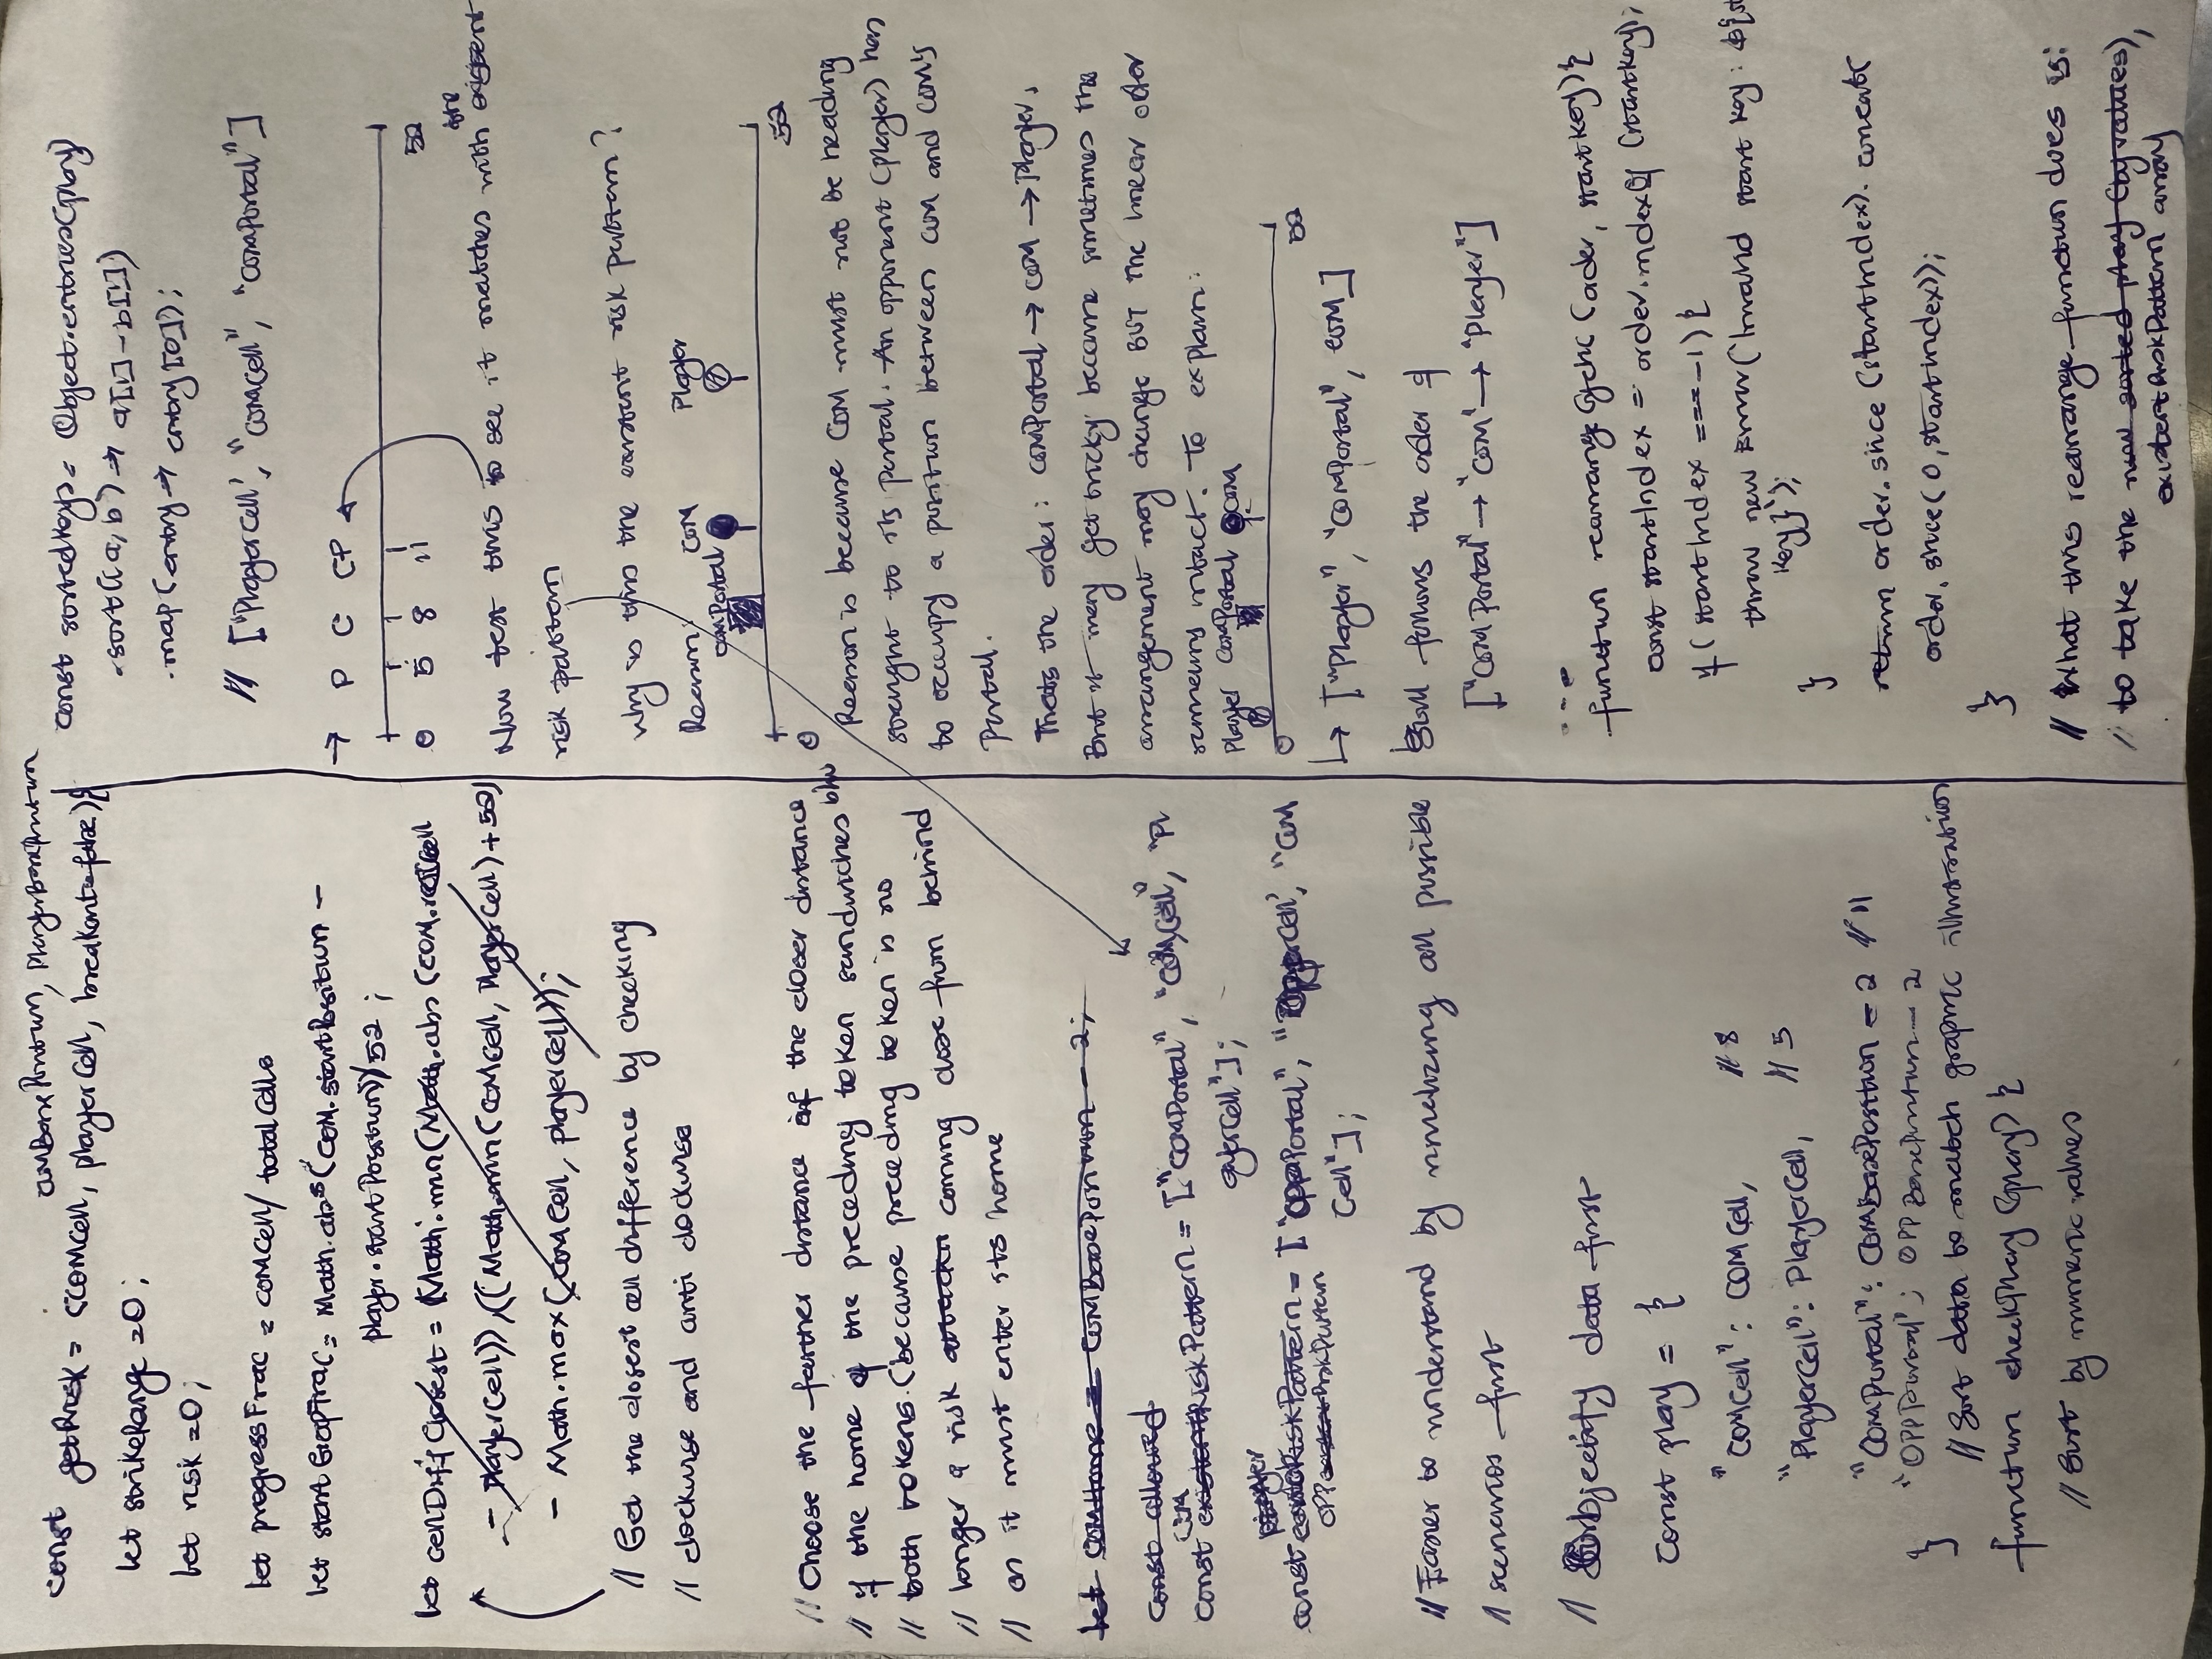 COMBasePosition, PlayerBasePosition
const getRisk = (COMCell, playerCell, breakant=false){
let strikeRange = 0;
let risk = 0;
let progressFrac = COMCell/ totalCells
let startGapFrac = Math.abs(COM.startPosition -
player.startPosition)/52;
let cellDiffClosest = (Math.min(Math.abs(COM.
- PlayerCell)),((Math.min(COMCell, PlayerCell)+52)
- Math.max(COMCell, playerCell));
// Get the closest cell difference by checking
// clockwise and anti clockwise
// Choose the farther distance if the closer distance
// if the home of the preceding token sandwiches b/w
// both tokens. (because preceding token is no
// longer a risk attacker coming close from behind
// as it must enter its home
let COMHome = COMBasePosition - 2;
const allowed
COM
const existentRiskPattern = ["COMPortal", "COMCell", "Pl
ayerCell"];
player
const RiskPattern = ["OppPortal", "OppCell", "COM
OPP RiskPattern
Cell"];
// Easier to understand by visualizing all possible
// scenarios first
// Objectify data first
Const play = {
"COMCell": COMCell, // 8
"PlayerCell": PlayerCell, // 5
"COMPortal": COMBasePosition - 2 // 11
"OPPPortal"; OPPBasePosition - 2
}
// Sort data to match graphic illustration
function checkPlay (play) {
// Sort by numeric values
const sortedKeys = Object.entries(play)
.sort((a,b) => a[1]-b[1])
.map(entry => entry[0]);
// ["PlayerCell", "COMCell", "COMPortal"]
→ P C CP
0 5 8 11 52
Now test this to see it matches with the existent
risk pattern
Why is this the existent risk pattern?
Reason:
COMPortal COM Player
0 52
Reason is because COM must not be heading
straight to its portal. An opponent (player) has
to occupy a position between COM and COM's
Portal.
Thats the order: COMPortal → COM → Player.
But it may get tricky because sometimes the
arrangement may change BUT the linear order
remains intact. To explain:
Player COMPortal COM
0 52
↳ ["Player", "COMPortal", COM]
Still follows the order of
["COMPortal" → "COM" → "Player"]
...
function rearrangeCyclic (order, startKey){
const startIndex = order.indexOf (startKey);
if (startIndex === -1) {
throw new Error(`Invalid start key: ${st
Key}`);
}
return order.slice (startIndex). concat(
order.slice(0,startIndex));
}
// What this rearrange function does is:
// to take the new sorted play (by values),
existentRiskPattern array